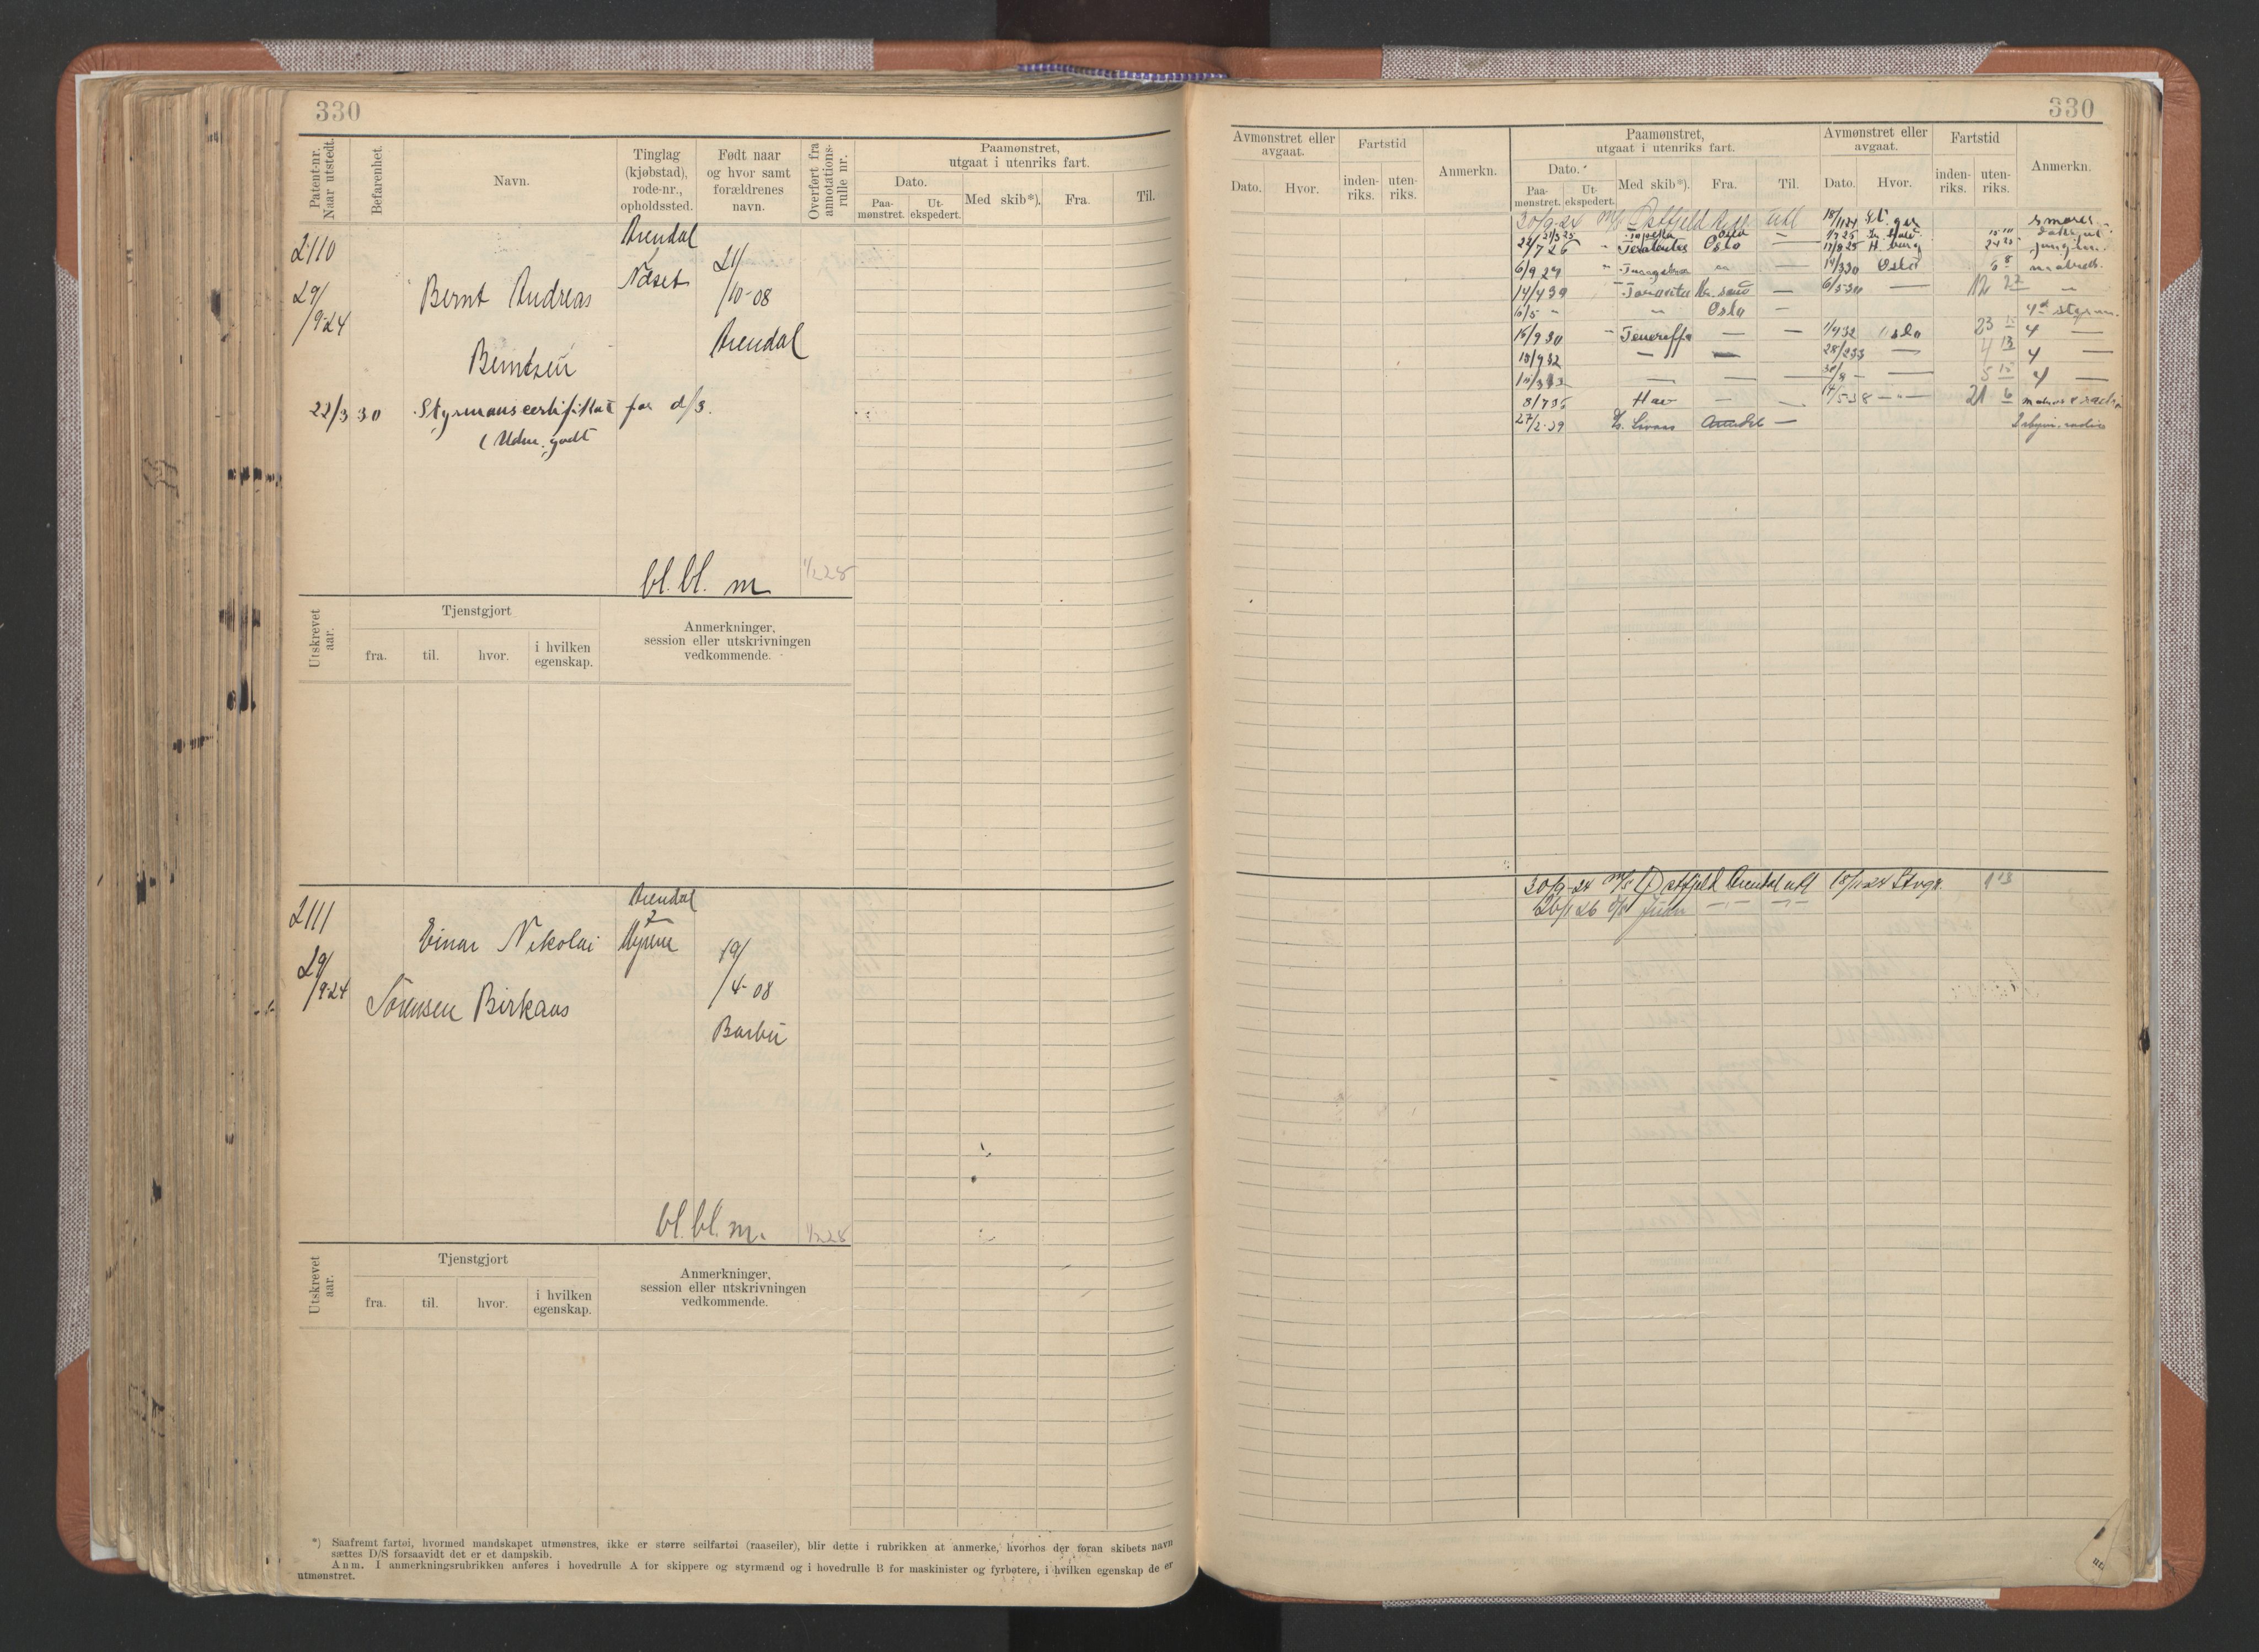 330
Patent-nr.
Naar utstedt.
Befarenhet.
Navn.
Tinglag
(kjøbstad),
rode-nr.,
opholdssted.
Født naar
og hvor samt
forældrenes
navn.
Overført fra
annotations-
rulle nr.
Paamønstret,
utgaat i utenriks fart.
Dato.
Paa-
mønstret.
Ut-
ekspedert.
Med skib*).
Fra.
Til.
2110
29/9-24
Bernt Andreas
Berntsen
Arendal
Næset
21/10-08
Arendal
22/3 30 Styrmanscertifikat for d/s.
(Udm. godt
bl. bl. m
1/2 28
Utskrevet
aar.
Tjenstgjort
fra.
til.
hvor.
i hvilken
egenskap.
Anmerkninger,
session eller utskrivningen
vedkommende.
2111
29/9-24
Einar Nikolai
Sørensen Birkaas
Arendal
2
Myrene
19/4-08
Barbu
bl. bl. m.
1/2 28
Utskrevet
aar.
Tjenstgjort
fra.
til.
hvor.
i hvilken
egenskap.
Anmerkninger,
session eller utskrivningen
vedkommende.
*) Saafremt fartøi, hvormed mandskapet utmønstres, ikke er større seilfartøi (raaseiler), blir dette i rubrikken at anmerke, hvorhos der foran skibets navn
sættes D/S forsaavidt det er et dampskib.
Anm. I anmerkningsrubrikken anføres i hovedrulle A for skippere og styrmænd og i hovedrulle B for maskinister og fyrbøtere, i hvilken egenskap de er
utmønstret.
330
Avmønstret eller
avgaat.
Dato.
Hvor.
Fartstid
inden-
riks.
uten-
riks.
Anmerkn.
Paamønstret,
utgaat i utenriks fart.
Dato.
Paa-
mønstret.
Ut-
ekspedert.
Med skib*).
Fra.
Til.
Avmønstret eller
avgaat.
Dato.
Hvor.
Fartstid
inden-
riks.
uten-
riks.
Anmerkn.
30/9-24 m/s Østfjeld utl 18/11 24
21/3 25 Oslo 1/7 25
22/7 26 Oslo 17/8 25 H. burg
6/9 29 14/3 30 Oslo
14/4 30 Kr. sand — 6/5 30 — 12 22
6/5 - Oslo - 4d styrm.
16/9 30 - Teneriffa — — 1/4 32 Oslo 23 15 4 —
13/9 32 — — 28/2 33 — 4 13 4 —
— — 30/8 - — 5 15 4 —
8/7 35 Hav — — 4/5 38 21 6
27/2-39 Arendal —
30/9-24 m/s Østfjeld Arendal utl 18/11 24 Stvgr. 1 18
26/1 26 — —